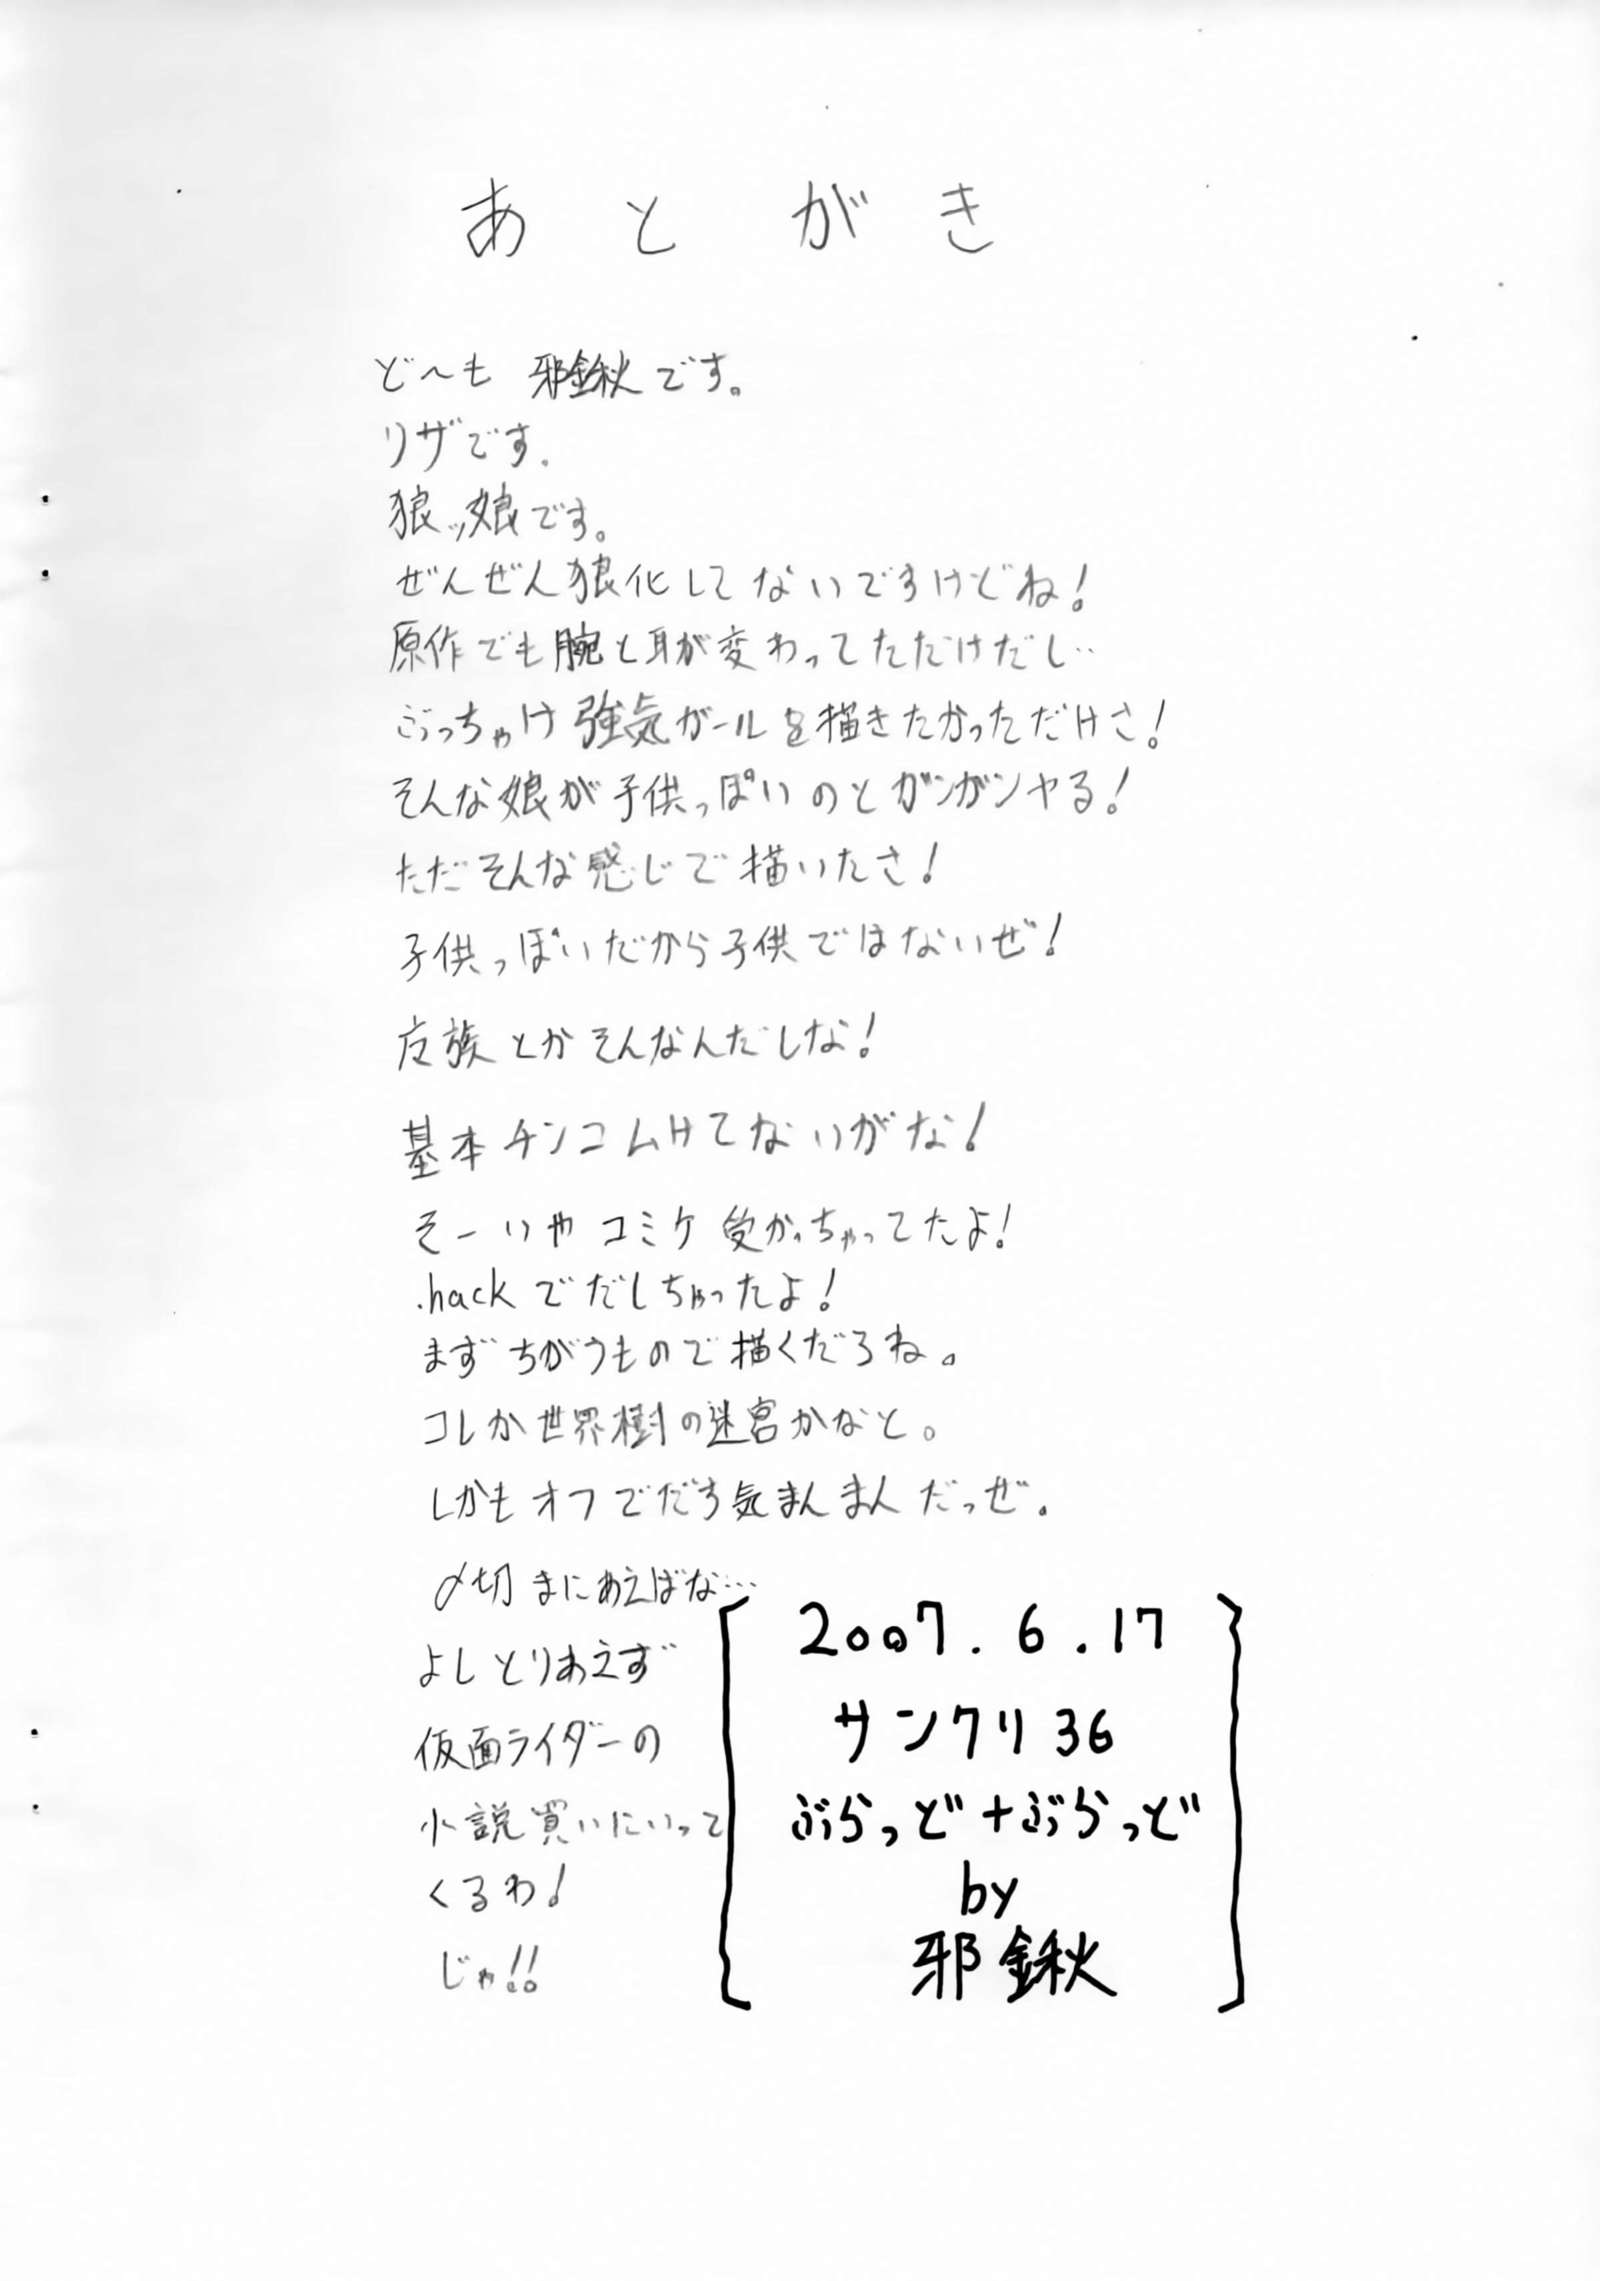 あとがき
ど〜も 邪鍬です。
リザです.
狼ッ娘です。
ぜんぜん狼化してないですけどね!
原作でも腕と耳が変わってただけだし‥
ぶっちゃけ強気ガールを描きたかっただけさ!
そんな娘が子供っぽいのとガンガンヤる!
ただそんな感じで描いたさ!
子供っぽいだから子供ではないぜ!
族とかそんなんだしな!
基本チンコムけてないがな!
そーいやコミケ受かっちゃってたよ!
.hackでだしちゃったよ!
まずちがうもので描くだろね。
コレか世界樹の迷宮かなと。
しかもオフでだす気まんまんだっぜ.
〆切まにあえばな…
よしとりあえず
仮面ライダーの
小説買いにいって
くるわ!
じゃ!!
2007.6.17
サンクリ36
ぶらっど+ぶらっど
by
邪鍬